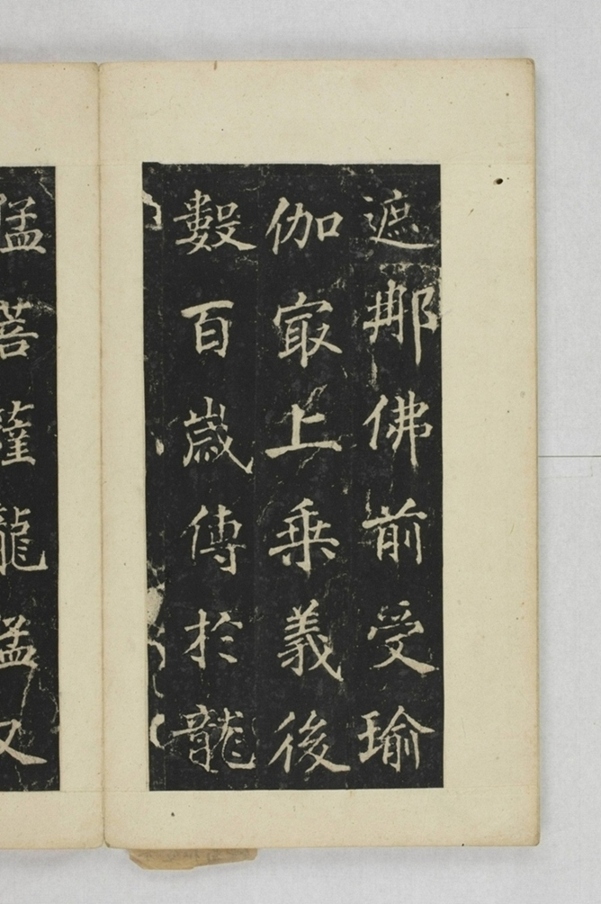 遮那佛前受瑜
伽冣上乗義後
數百歳傳於龍
猛菩薩龍猛又